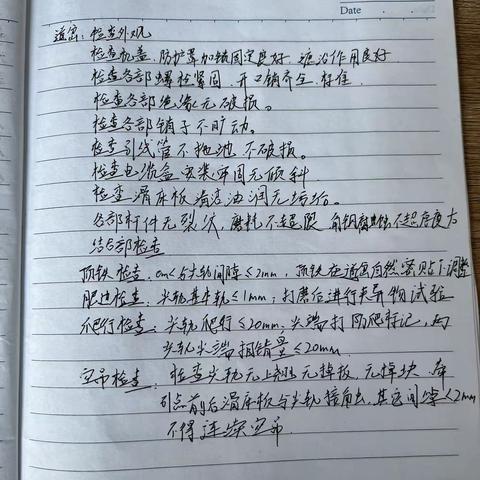 Date
道岔:检查外观
检查机盖、防护罩加锁固定良好,遮治作用良好
检查各部螺栓紧固,开口销齐全、标准
检查各部绝缘无破损。
检查各部销子不旷动。
检查引线管不拖地,不破损。
检查电缆盒安装牢固无倾斜
检查滑床板清洁油润无
各部杆件无裂纹,磨耗不超限 不超厚度大
结合部检查
顶铁检查:与尖轨间隙≤2mm,顶铁在
肥边检查:尖轨基本轨≤1mm;打磨后进行夹异物试验
爬行检查:尖轨爬行≤20mm,尖端打防爬标记,两
尖轨尖端相错量≤20mm
空吊检查:检查尖轨无上翘、无掉板,无掉块 牵
引点前后滑床板与尖轨接触,其它间隙<2mm
不得连续空吊